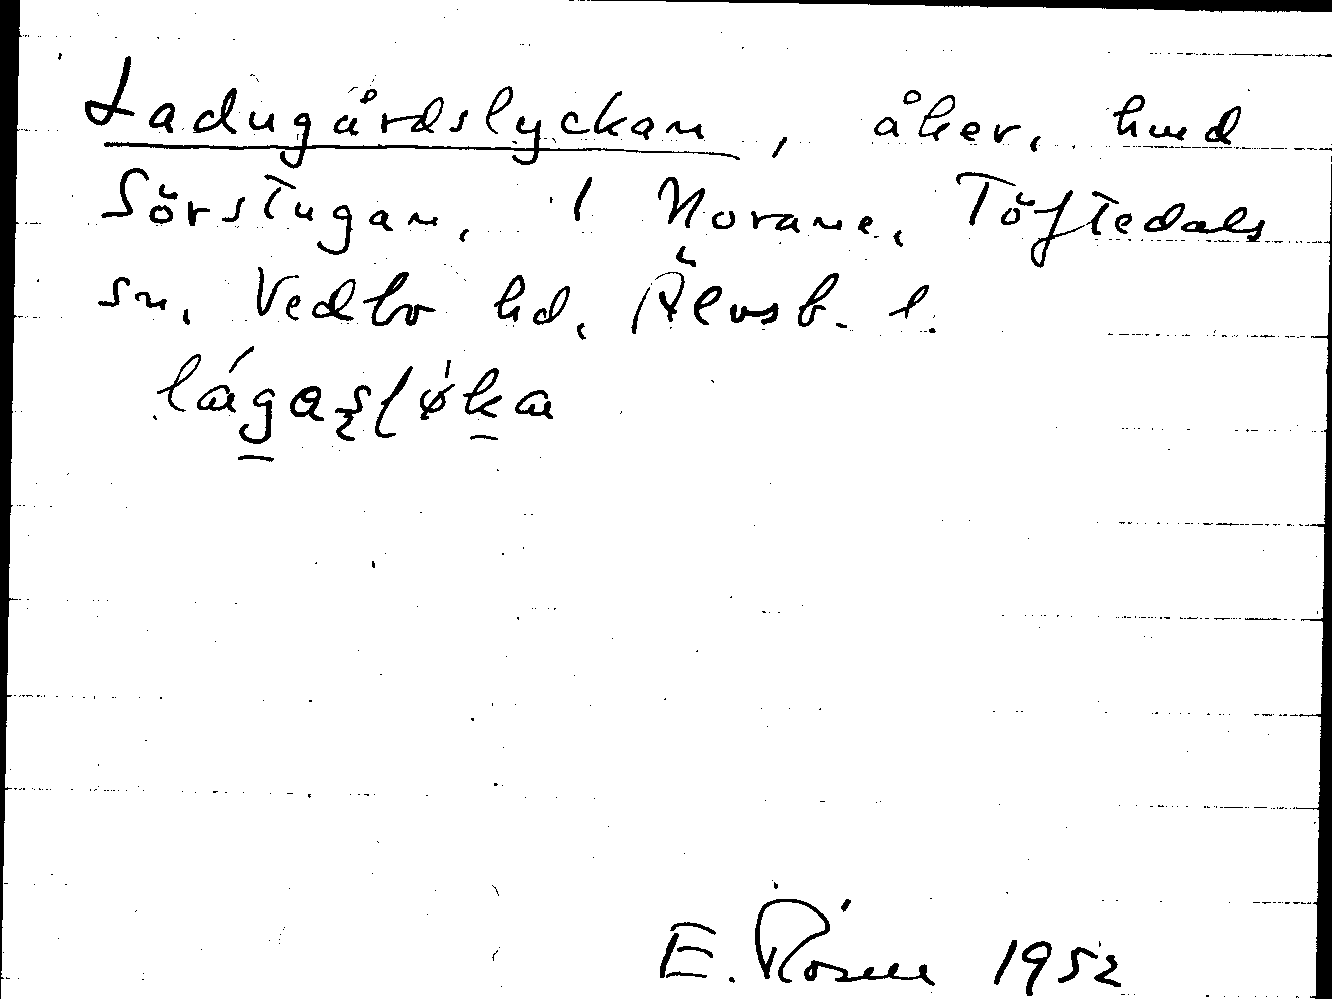 Ladugårdslyckan, åker, hmd
Sörstugan, 1 Norane, Töftedals
sn, Vedbo hd, Älvsb. l.
lágaslø̀ka
E. Rosén 1952